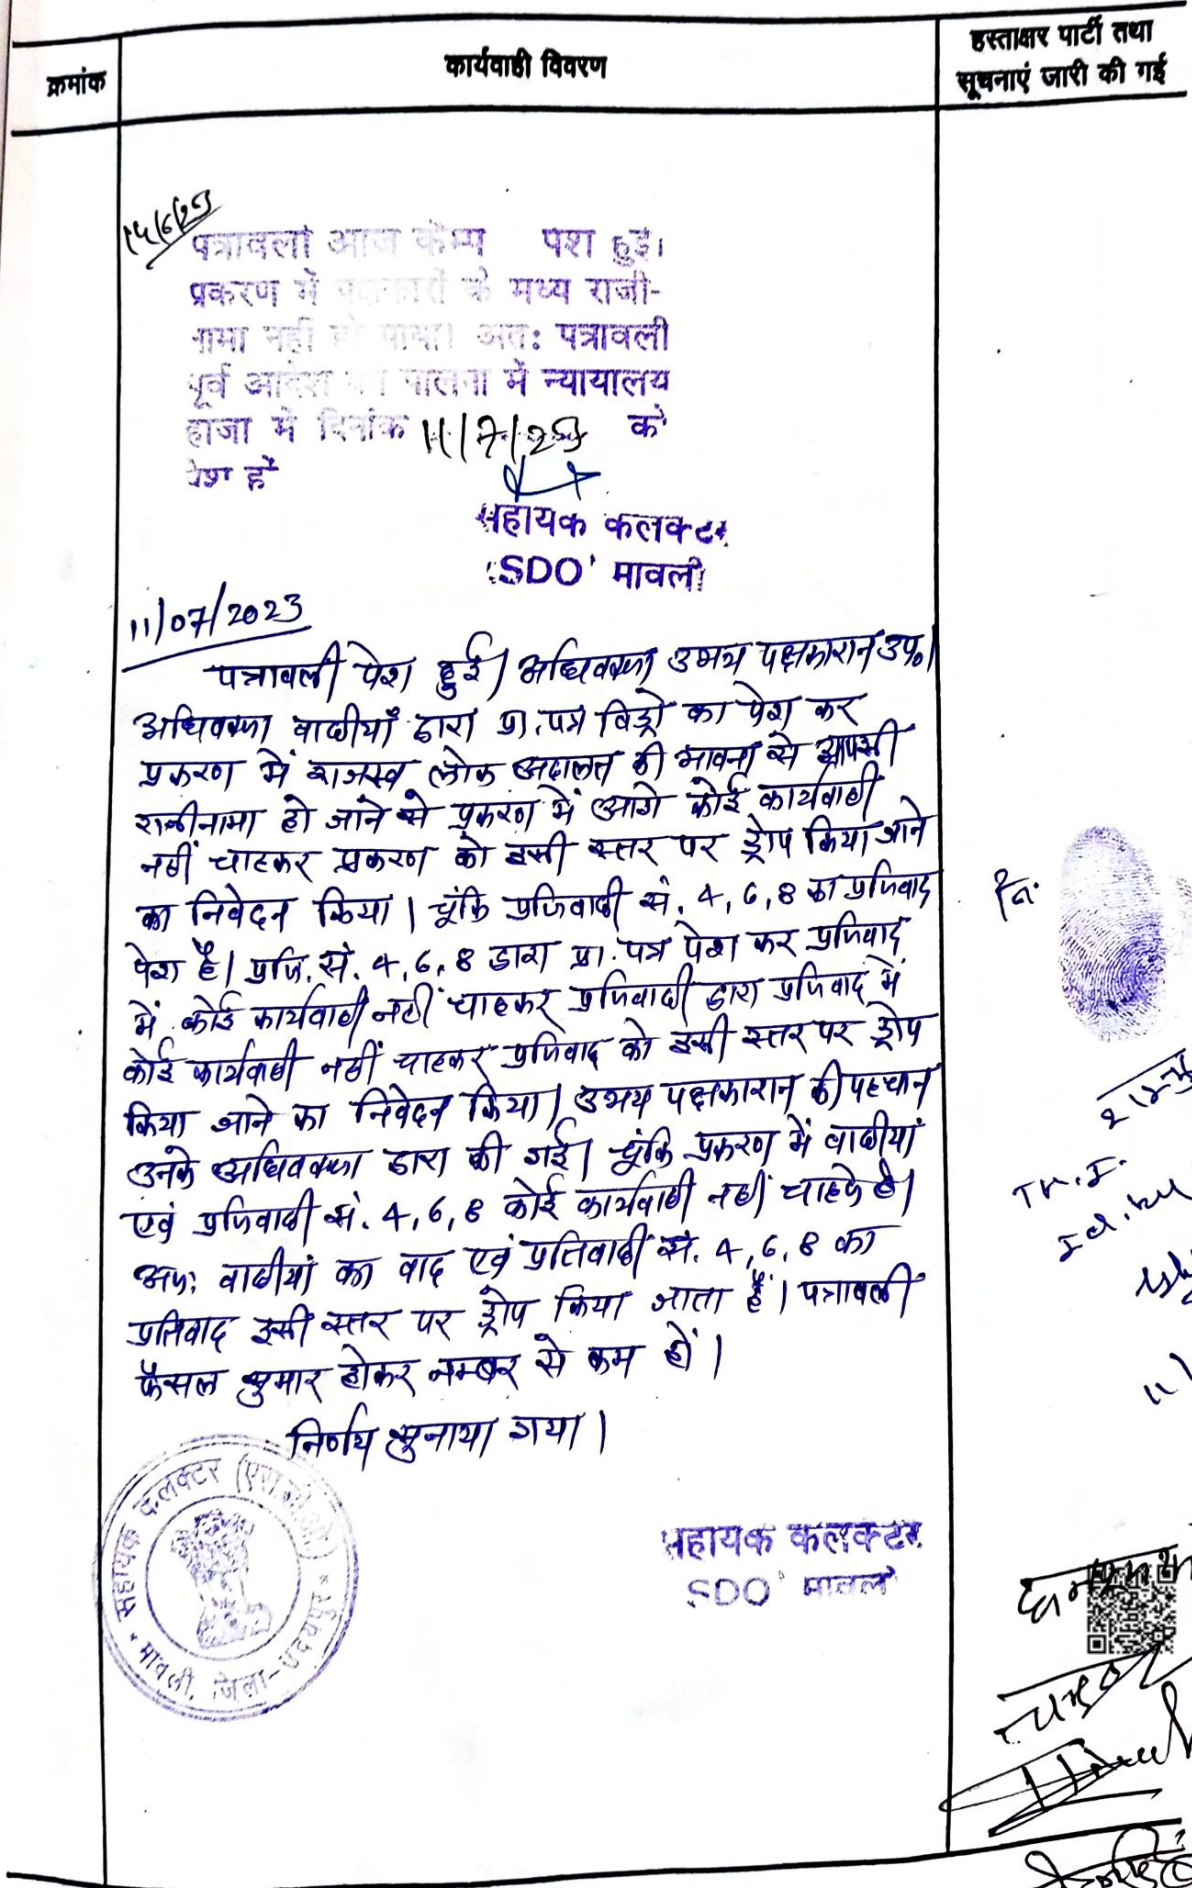 क्रमांक
कार्यवाही विवरण
हस्ताक्षर पार्टी तथा
सूचनाएं जारी की गई
पत्रावली आज कैम्प पेश हुई।
प्रकरण में पक्षकारों के मध्य राजी-
नामा नहीं हो पाया। अतः पत्रावली
पूर्व आदेश की पालना में न्यायालय
हाजा में दिनांक 11/7/23 को
पेश हों
सहायक कलक्टर
SDO मावली
11/07/2023
पत्रावली पेश हुई। अधिवक्ता उभय पक्षकारान उप०।
अधिवक्ता वादीयाँ द्वारा प्रा.पत्र विड्रो का पेश कर
प्रकरण में राजस्व लोक अदालत की भावना से आपसी
राजीनामा हो जाने से प्रकरण में आगे कोई कार्यवाही
नहीं चाहकर प्रकरण को इसी स्तर पर ड्रोप किया जाने
का निवेदन किया। चूंकि प्रतिवादी सं. 4, 6, 8 का प्रतिवाद
पेश है। प्रति. सं. 4, 6, 8 द्वारा प्रा. पत्र पेश कर प्रतिवाद
में कोई कार्यवाही नहीं चाहकर प्रतिवादी द्वारा प्रतिवाद में
कोई कार्यवाही नहीं चाहकर प्रतिवाद को इसी स्तर पर ड्रोप
किया जाने का निवेदन किया। उभय पक्षकारान की पहचान
उनके अधिवक्ता द्वारा की गई। चूंकि प्रकरण में वादीयां
एवं प्रतिवादी सं. 4, 6, 8 कोई कार्यवाही नहीं चाहते है।
अतः वादीयां का वाद एवं प्रतिवादी सं. 4, 6, 8 का
प्रतिवाद इसी स्तर पर ड्रोप किया जाता है। पत्रावली
फैसल शुमार होकर नम्बर से कम हो।
निर्णय सुनाया गया।
सहायक कलक्टर (एस.डी.ओ.)
मावली, जिला-उदयपुर
सहायक कलक्टर
SDO मावली